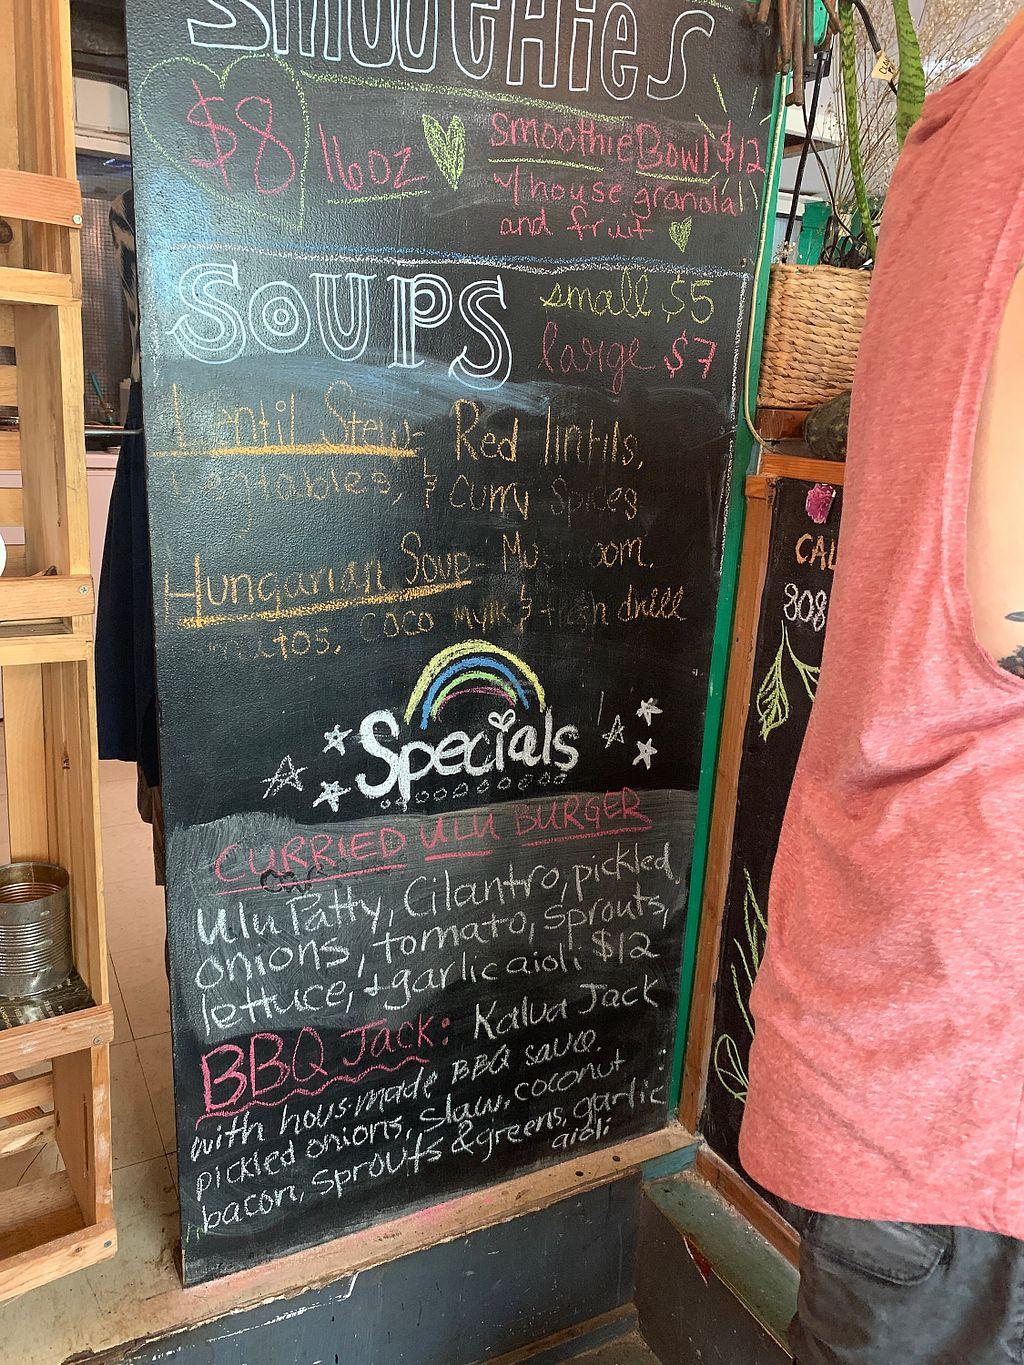 Smoothies
$8 16oz
Smoothie Bowl $12
w/ house granola
and fruit
Soups
small $5
large $7
Lentil Stew - Red lintils,
Vegtables, & curry Spices
Hungarian Soup - Mushroom,
coco mylk & fresh drill
Specials
CURRIED ULU BURGER
Ulu Patty, Cilantro, pickled
onions, tomato, sprouts,
lettuce, + garlic aioli $12
BBQ Jack: Kalua Jack
with hous-made BBQ sauce.
pickled onions, slaw, coconut
bacon, sprouts & greens, garlic
aioli
CAL
808